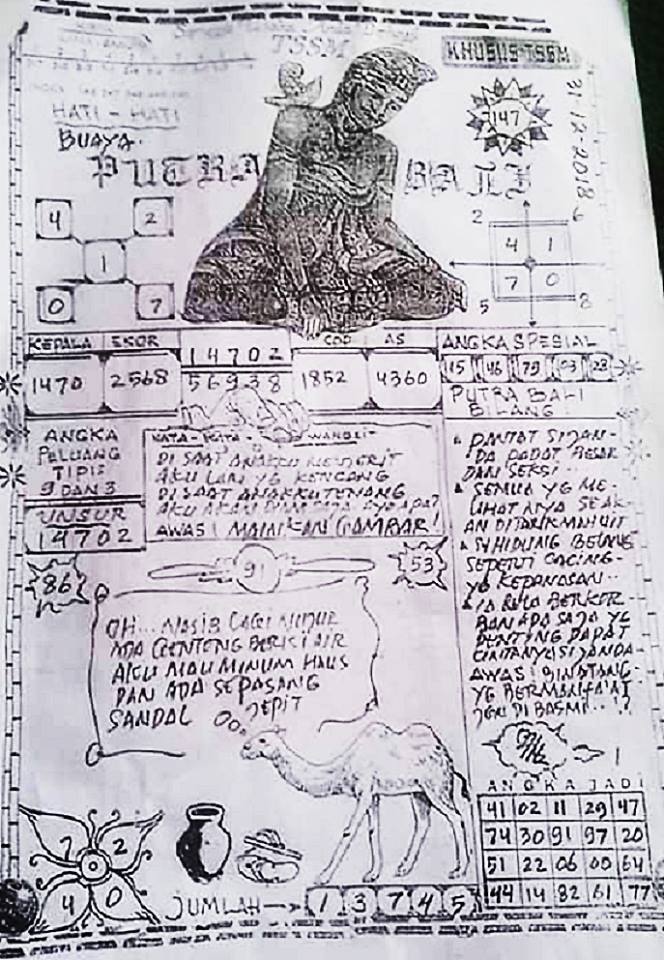 TSSM
KHUSUS-TSSM
HATI - HATI
BUAYA.
147
31-12-2018
PUTRA BALI
4 2
1
0 7
2 6
4 1
7 0
5 8
KEPALA EKOR
1470 2568
14702
56938
COP AS
1852 4360
ANGKA SPESIAL
45 46 79 03 28
PUTRA BALI
BILANG
ANGKA
PELUANG
TIPIS
9 DAN 3
UNSUR
14702
KATA - KATA
DI SAAT ANAKKU MENJERIT
AKU LARI YG KENCANG
DI SAAT ANAKKU TENANG
AKU AKAN
AWAS! MAINKAN GAMBAR!
PANTAT SIJAN-
DA PADAT BESAR
DAN SEKSI..
SEMUA YG ME-
LIHATNYA SEAK-
AN DITARIK
SI HIDUNG BELANG
SEPERTI CACING
YG KEPANASAN..
RELA BERKOR-
BAN APA SAJA YG
PENTING DAPAT
CINTANYA SI JANDA
AWAS! BINATANG
YG BERMANFAAT
DI BASMI..!!
86
91
53
OH... NASIB LAGI MUJUR
ADA GENTENG BERISI AIR
AKU MAU MINUM HAUS
DAN ADA SEPASANG
SANDAL JEPIT
7 2
4 0
JUMLAH → 1 3 7 4 5
ANGKA JADI
41 02 11 29 47
74 30 91 97 20
51 22 06 00 64
44 14 82 61 77